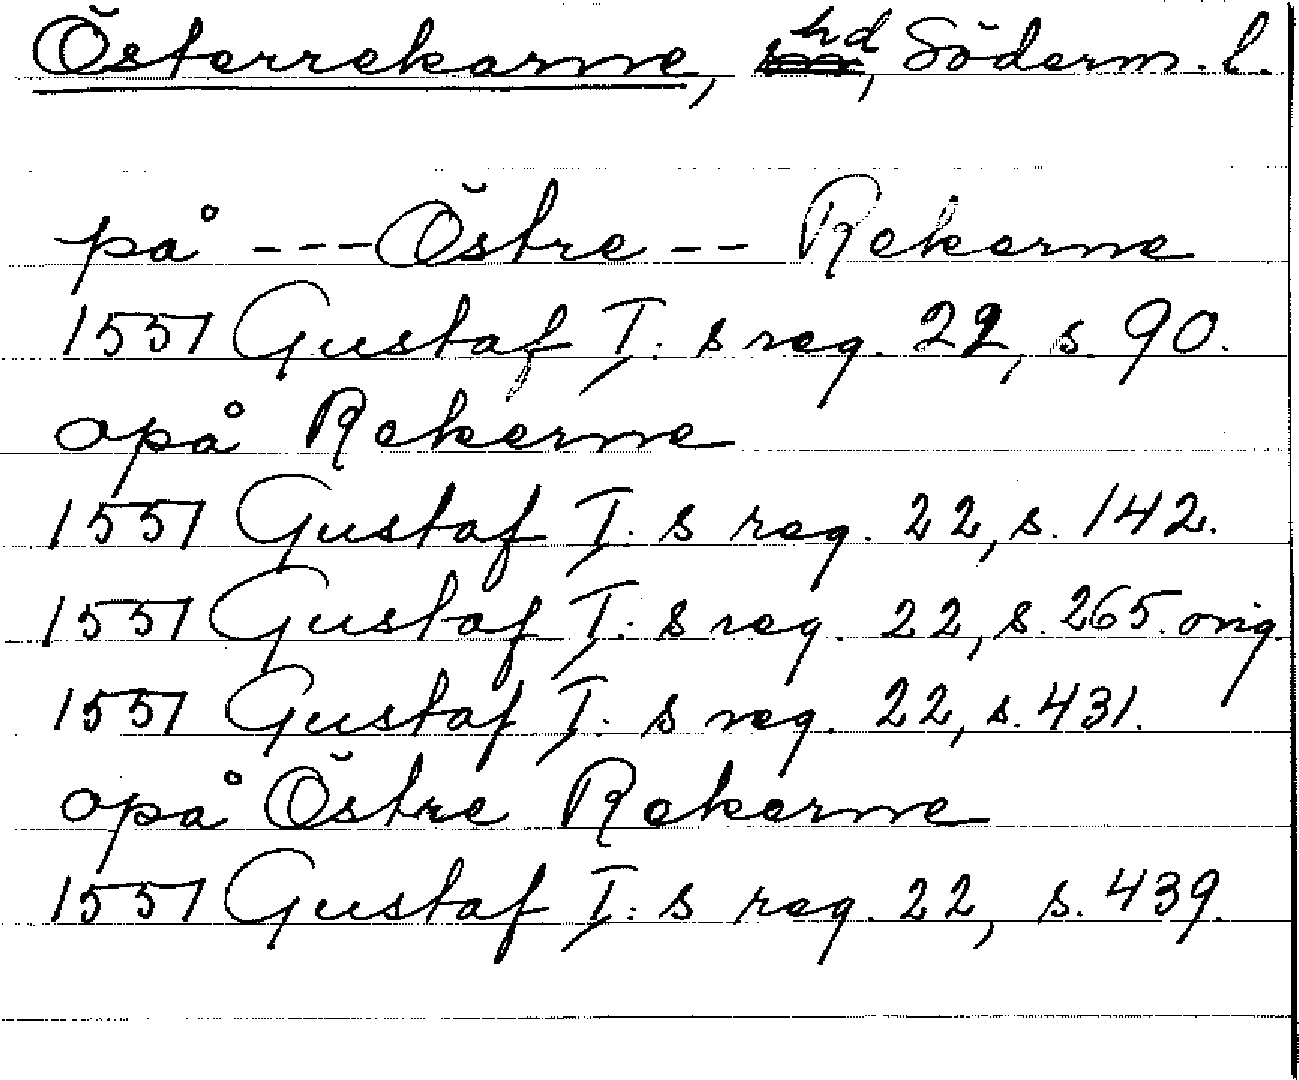 Österrekarne, hd, Söderm. l.
på --- Östre -- Rekerne
1551 Gustaf I: s reg. 22, s. 90.
opå Rekerne
1551 Gustaf I: s reg. 22, s. 142.
1551 Gustaf I: s reg. 22, s. 265. orig.
1551 Gustaf I: s reg. 22, s. 431.
opå Östre Rekerne
1551 Gustaf I: s reg. 22, s. 439.